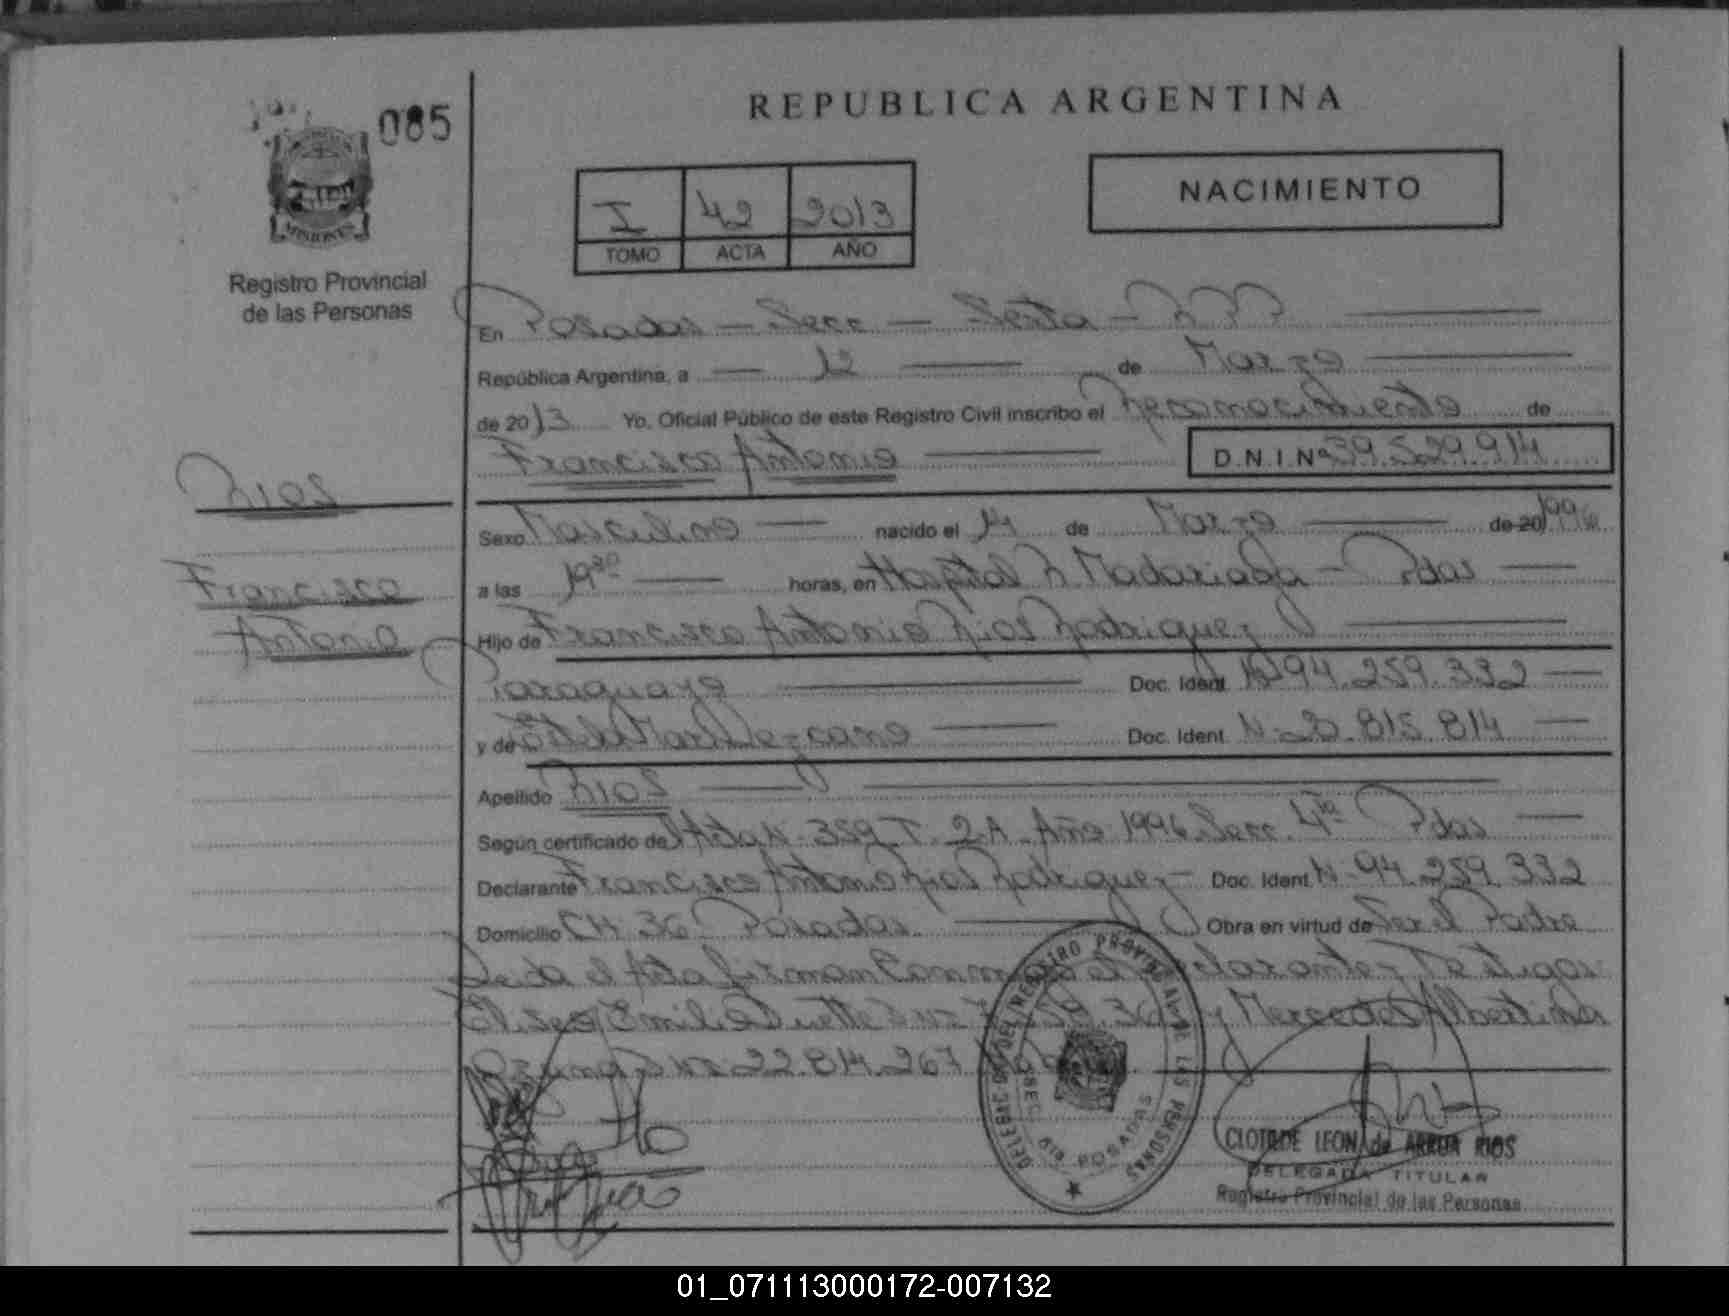 085
REPUBLICA ARGENTINA
MISIONES
Registro Provincial
de las Personas
I 42 2013
TOMO ACTA AÑO
NACIMIENTO
En Posadas — Secc — Sexta —
República Argentina, a — 12 — de Marzo
de 2013 Yo. Oficial Público de este Registro Civil inscribo el Reconocimiento de
Francisco Antonio — D.N.I.Nº 39.529.914
Rios
Francisco
Antonio
Sexo Masculino — nacido el 14 de Marzo — de 20 1996
a las 19 30 — horas, en Hospital R Madariaga — Pdas —
Hijo de Francisco Antonio Rios Rodriguez —
Paraguayo — Doc. Ident. Nº 94.259.332 —
y de — Doc. Ident. N: 20.815.814 —
Apellido RIOS —
Según certificado de Acta N: 359 T. 2.A. Año 1996. Secc. 4ta Pdas —
Declarante Francisco Antonio Rios Rodriguez — Doc. Ident. N: 94.259.332
Domicilio CH: 36 Posadas — Obra en virtud de Ser el Padre
Leida el Acta firman Conmigo el Declarante y Testigos
Eliseo Emilio y Mercedes Albertina
22.814.267
DELEGAC. DEL REGISTRO PROVINCIAL DE LAS PERSONAS
SEC. 6ta POSADAS
CLOTILDE LEON de ARRUA RIOS
DELEGADA TITULAR
Registro Provincial de las Personas
01_071113000172-007132